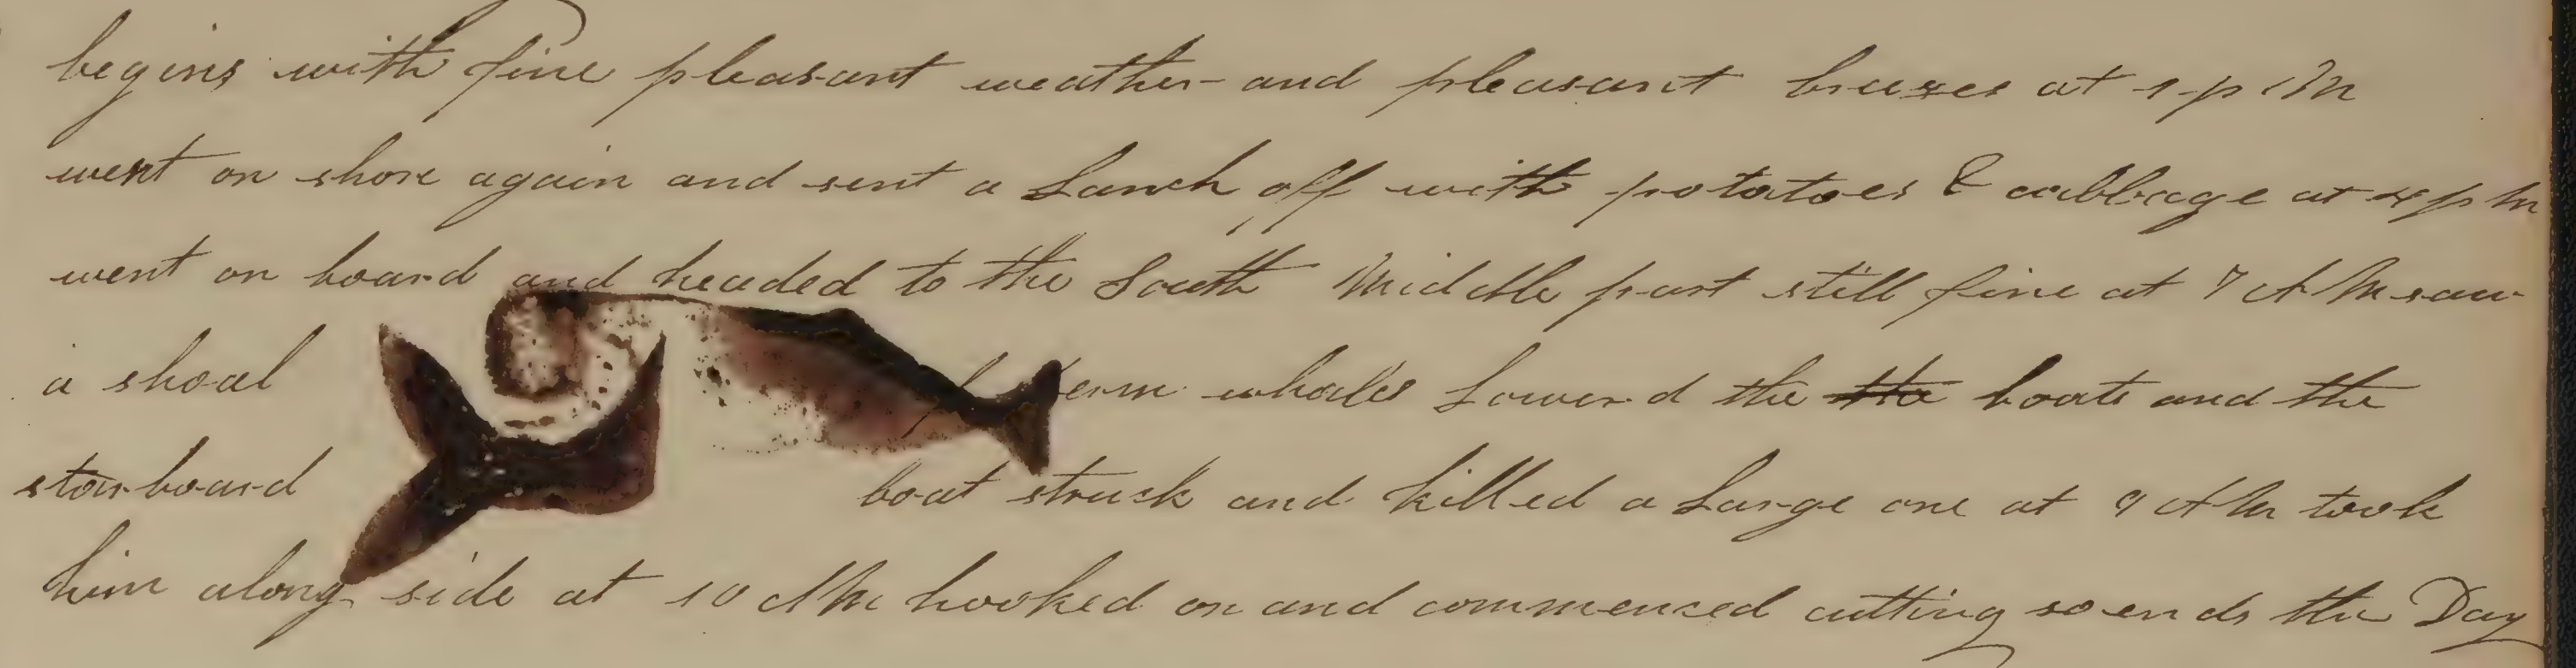 begins with fine pleasant weather and pleasant breezes at 1 p M
went on shore again and sent a Lanch off with potatoes & cabbage at 4 p m
went on board and headed to the South Middle part still fine at 7 A M saw
a shoal whales Lowerd the the boats and the
starboard boat struck and killed a Large one at 9 A M took
him along side at 10 A M hooked on and commenced cutting so ends the Day